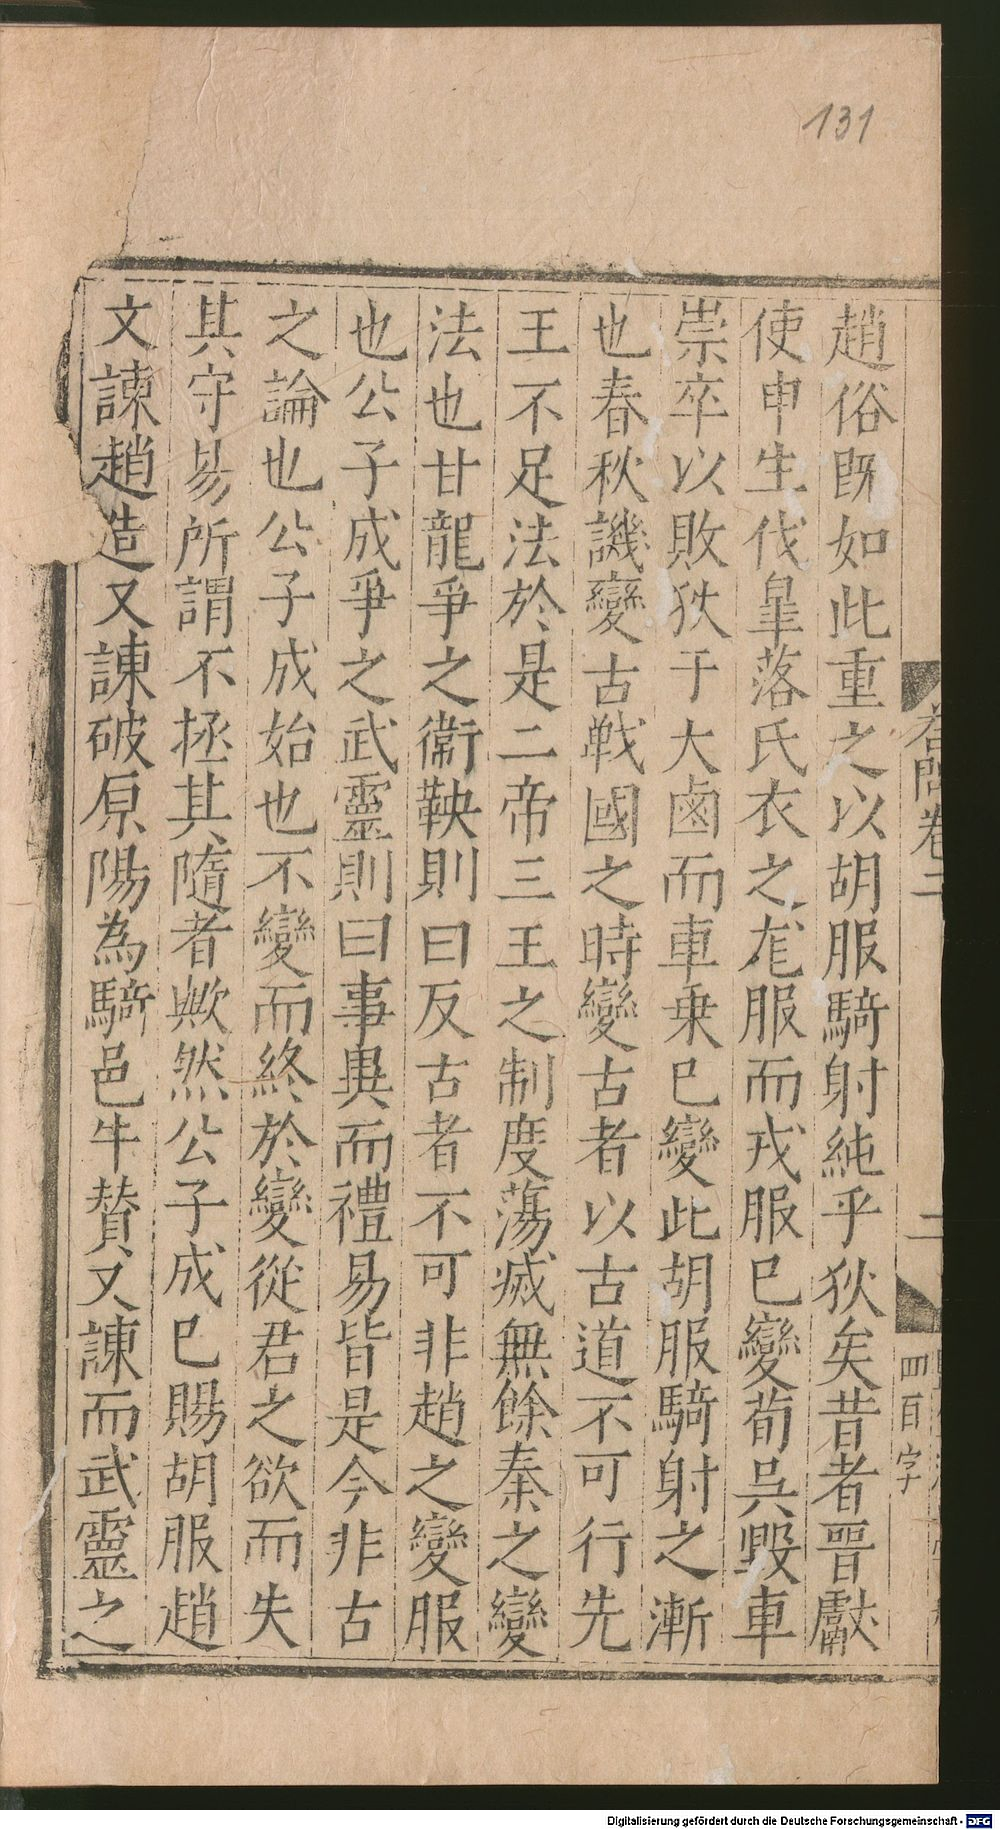 131
趙俗既如此重之以胡服騎射純乎狄矣昔者晉獻
使申生伐臯落氏衣之尨服而戎服已變荀吳毀車
崇卒以敗狄于大鹵而車乗已變此胡服騎射之漸
也春秋譏變古戰國之時變古者以古道不可行先
王不足法於是二帝三王之制度蕩烕無餘秦之變
法也甘龍爭之衞鞅則曰反古者不可非趙之變服
也公子成爭之武靈則曰事異而禮易皆是今非古
之論也公子成始也不變而終於變從君之欲而失
其守易所謂不拯其隨者歟然公子成已賜胡服趙
文諫趙造又諫破原陽為騎邑牛賛又諫而武靈之
荅問卷三
二
四百字
Digitalisierung gefördert durch die Deutsche Forschungsgemeinschaft - DFG